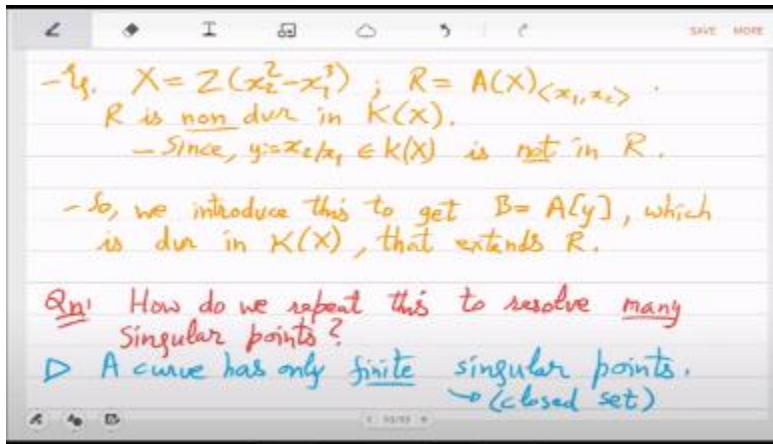 SAVE MORE
- Eg. X = Z(x₂²-x₁³) ; R = A(X)<x₁,x₂> .
R is non dvr in K(X).
- Since, y:=x₂/x₁ ∈ k(X) is not in R.
- So, we introduce this to get B= A[y], which
is dvr in K(X), that extends R.
Qn: How do we repeat this to resolve many
singular points?
▷ A curve has only finite singular points.
↳ (closed set)